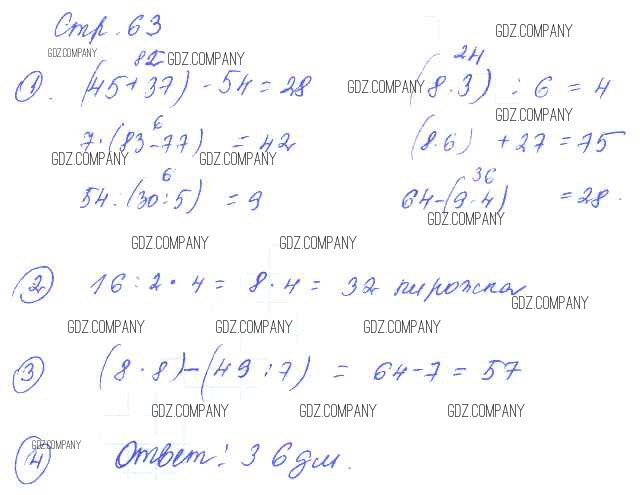 Стр. 63
GDZ.COMPANY
GDZ.COMPANY
82 GDZ.COMPANY 24
① (45+37) - 54 = 28 GDZ.COMPANY (8·3) : 6 = 4
GDZ.COMPANY
6
7·(83-77) = 42 (8·6) + 27 = 75
GDZ.COMPANY GDZ.COMPANY
6 36
54:(30:5) = 9 64-(9·4) = 28.
GDZ.COMPANY
GDZ.COMPANY GDZ.COMPANY
② 16:2·4 = 8·4 = 32 пирожка
GDZ.COMPANY
GDZ.COMPANY GDZ.COMPANY GDZ.COMPANY
③ (8·8)-(49:7) = 64-7 = 57
GDZ.COMPANY GDZ.COMPANY GDZ.COMPANY
GDZ.COMPANY
④ Ответ: 36 дм.